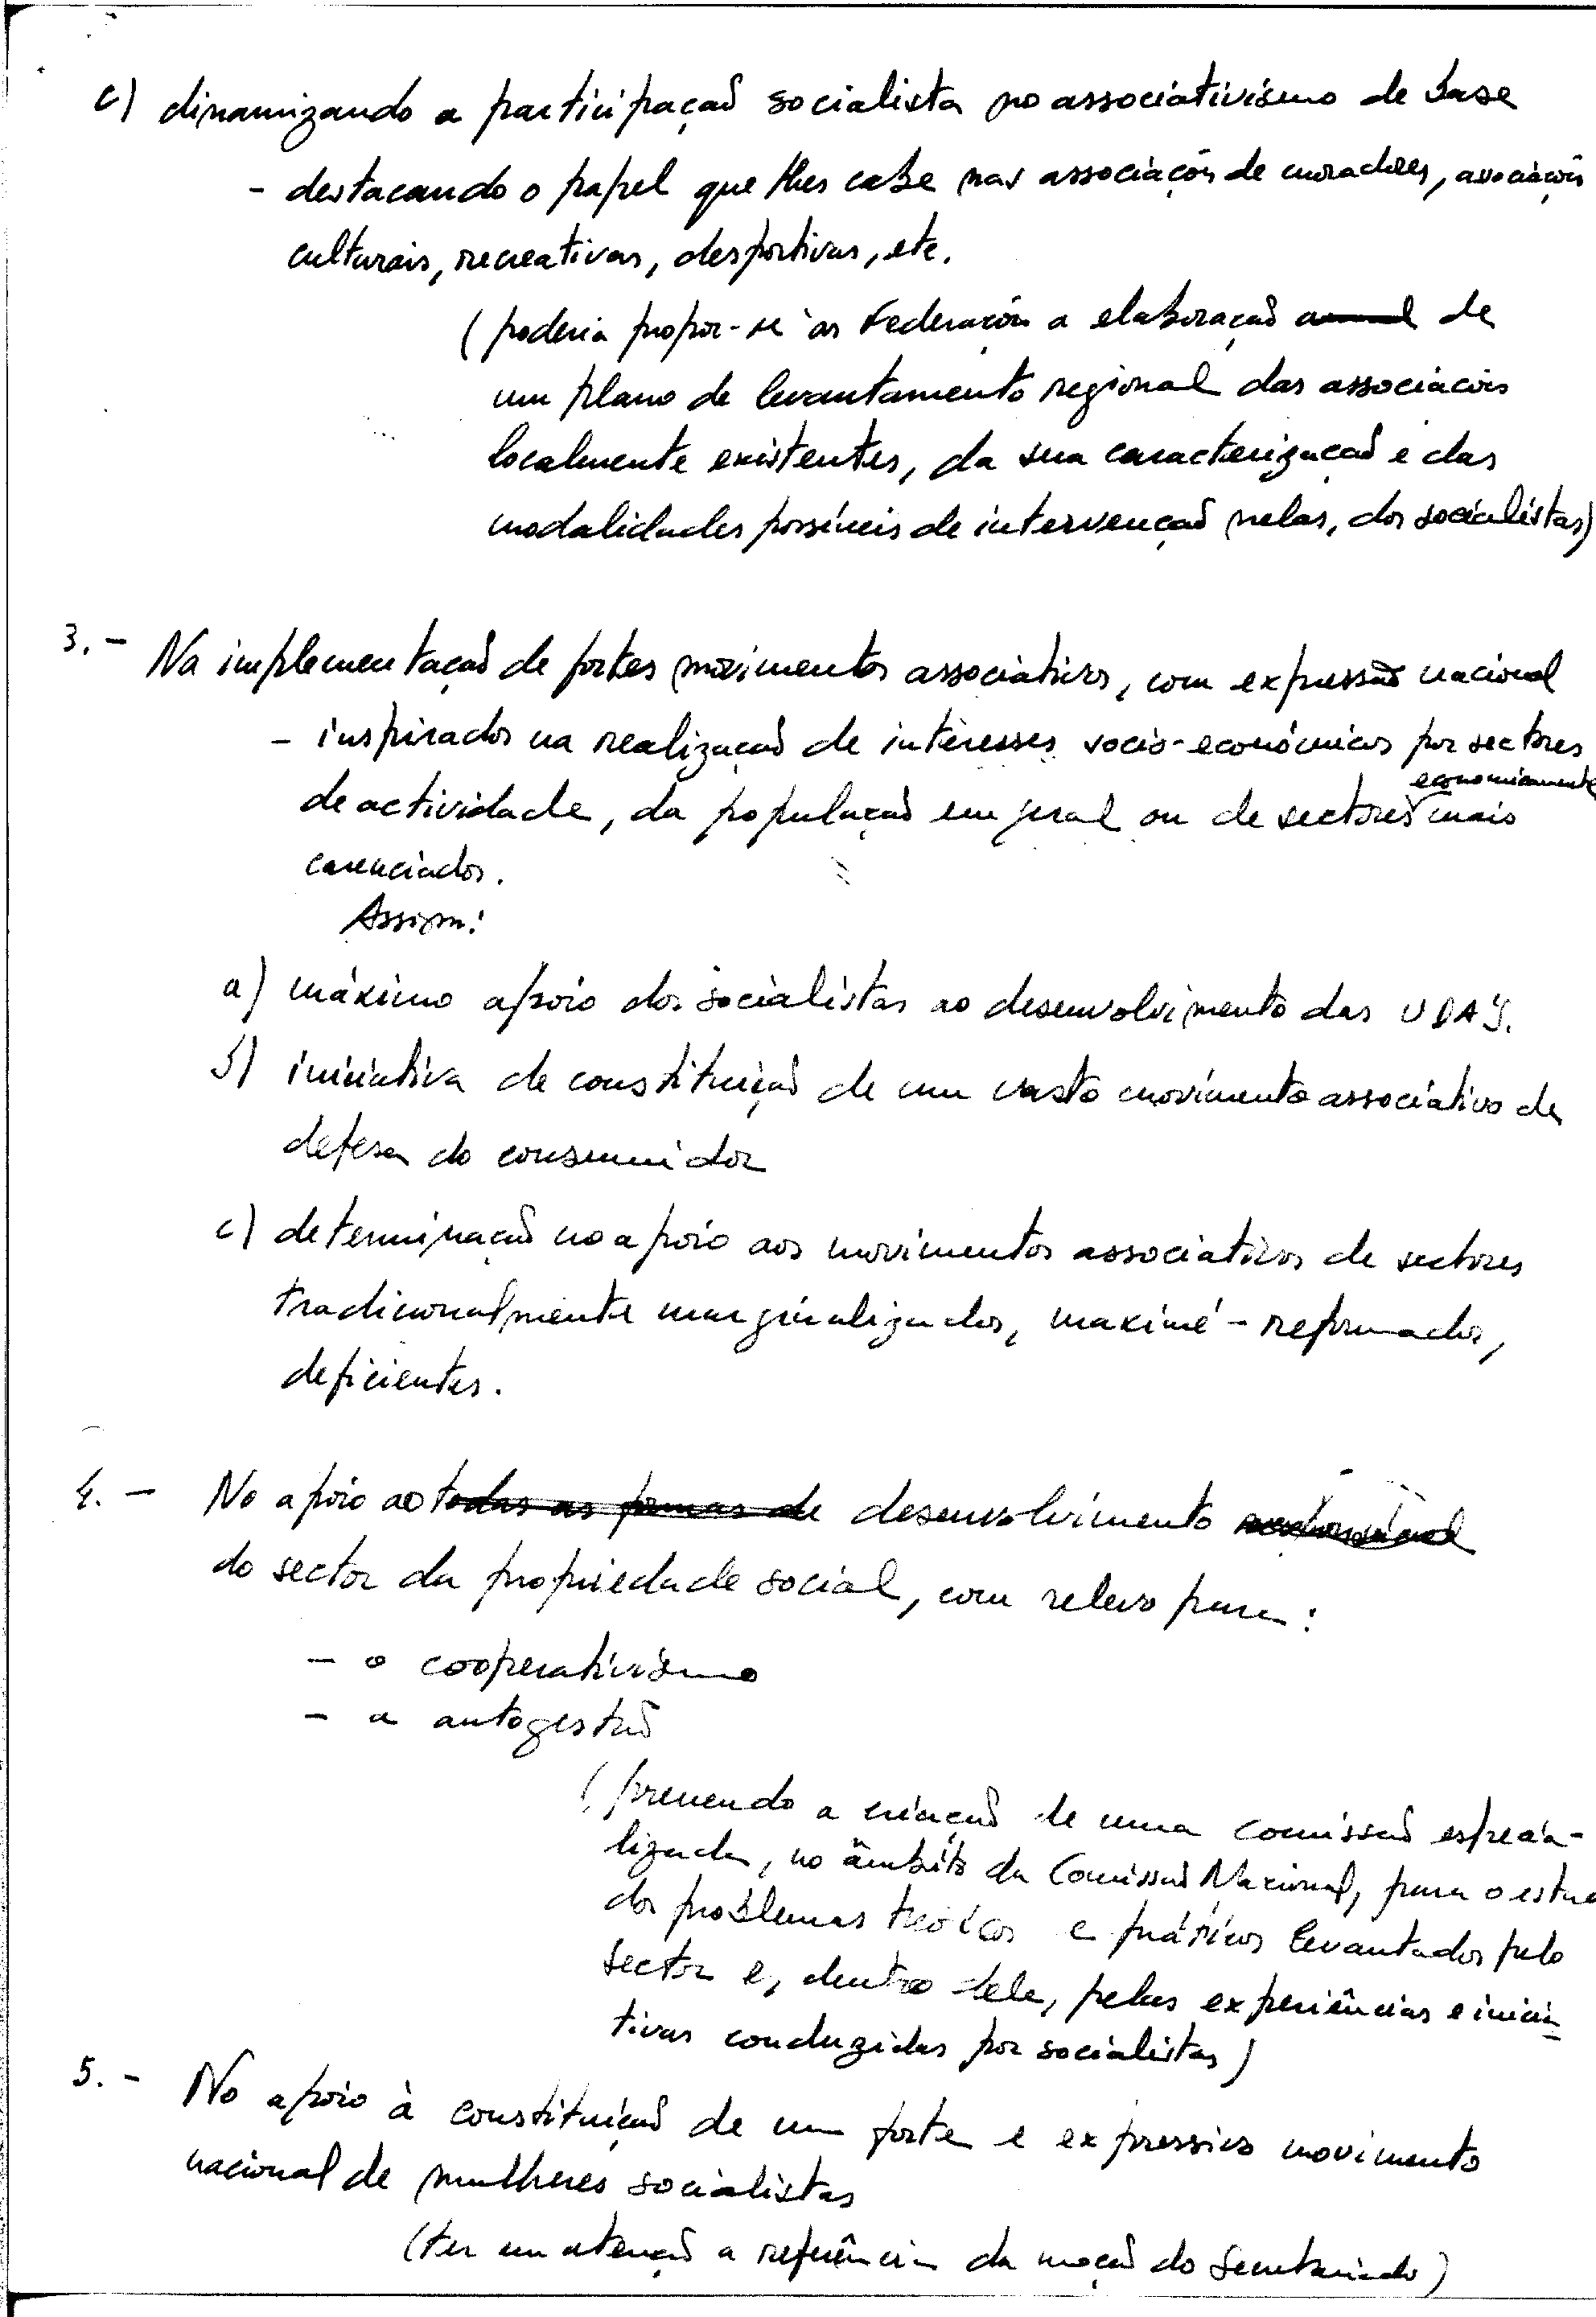 c) dinamizando a participação socialista no associativismo de base
- destacando o papel que lhes cabe nas associações de moradores, associações
culturais, recreativas, desportivas, etc.
(poderia propor-se às Federações a elaboração de
um plano de levantamento regional das associações
localmente existentes, da sua caracterização e das
modalidades possíveis de intervenção nelas, dos socialistas)
3. - Na implementação de fortes movimentos associativos, com expressão nacional
- inspirados na realização de interesses socio-económicos por sectores
economicamente
de actividade, da população em geral ou de sectores mais
carenciados.
Assim:
a) máximo apoio dos socialistas ao desenvolvimento das UDA's.
b) iniciativa de constituição de um vasto movimento associativo de
defesa do consumidor
c) determinação no apoio aos movimentos associativos de sectores
tradicionalmente marginalizados, maximé - reformados,
deficientes.
4. - No apoio ao todas as formas de desenvolvimento
do sector da propriedade social, com relevo para:
- o cooperativismo
- a autogestão
(prevendo a criação de uma comissão especia-
lizada, no âmbito da Comissão Nacional, para o estudo
dos problemas teóricos e práticos levantados pelo
sector e, dentro dele, pelas experiências e inicia-
tivas conduzidas por socialistas)
5. - No apoio à constituição de um forte e expressivo movimento
nacional de mulheres socialistas
(ter em atenção a referência da moção do Secretariado)